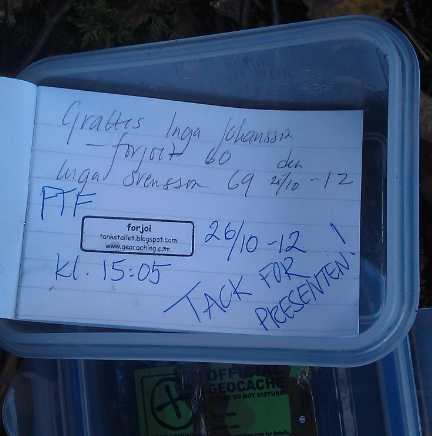 Grattis Inga Johansson
- forjoit 60 den
Inga Svensson 69 21/10 -12
FTF
forjoi
tankstallet.blogspot.com
www.geocaching.com
26/10 -12
kl. 15:05
TACK FÖR
PRESENTEN!
OFFICIAL
GEOCACHE
DO NOT DISTURB